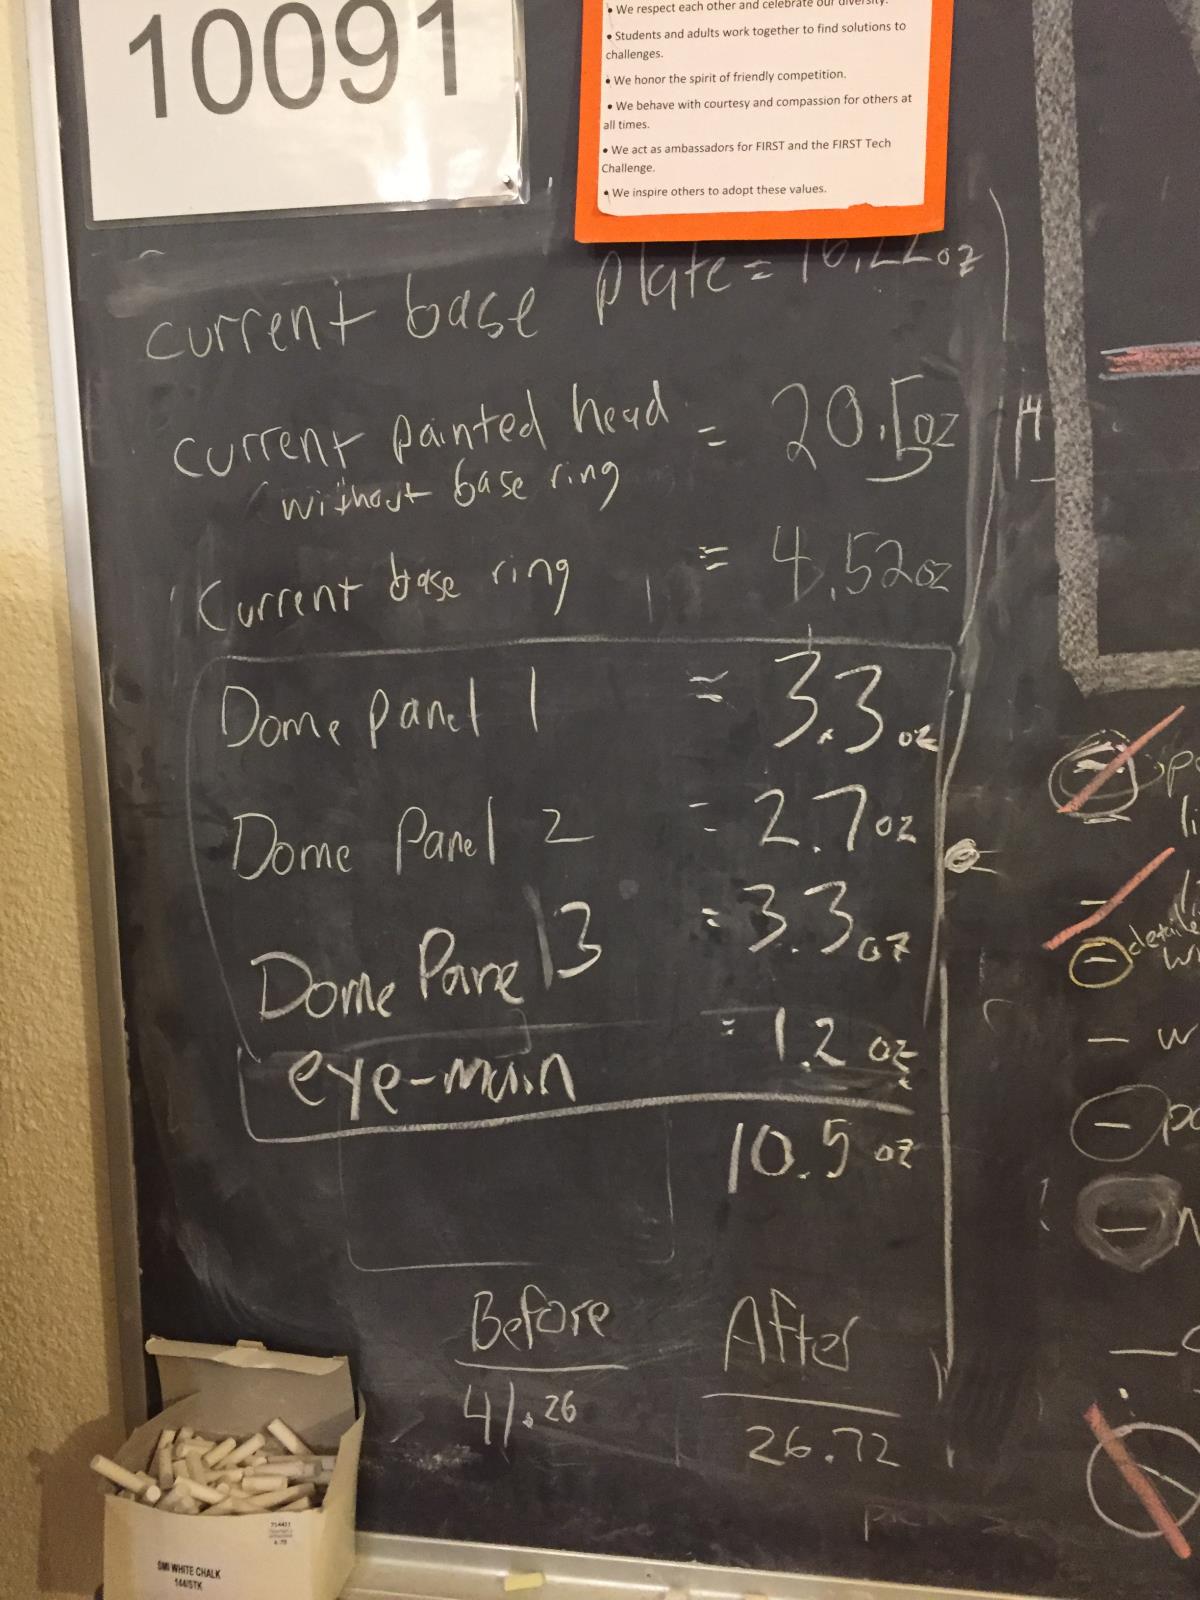 10091
• We respect each other and celebrate our diversity.
• Students and adults work together to find solutions to
challenges.
• We honor the spirit of friendly competition.
• We behave with courtesy and compassion for others at
all times.
• We act as ambassadors for FIRST and the FIRST Tech
Challenge.
• We inspire others to adopt these values.
current base plate = 16.22oz
current painted head = 20.5oz
without base ring
Current base ring = 4.52oz
Dome panel 1 = 3.3oz
Dome Panel 2 = 2.7oz
Dome Panel 3 = 3.3oz
eye-main = 1.2 oz
10.5 oz
Before After
41.26 26.72
detailed
SMI WHITE CHALK
144/STK